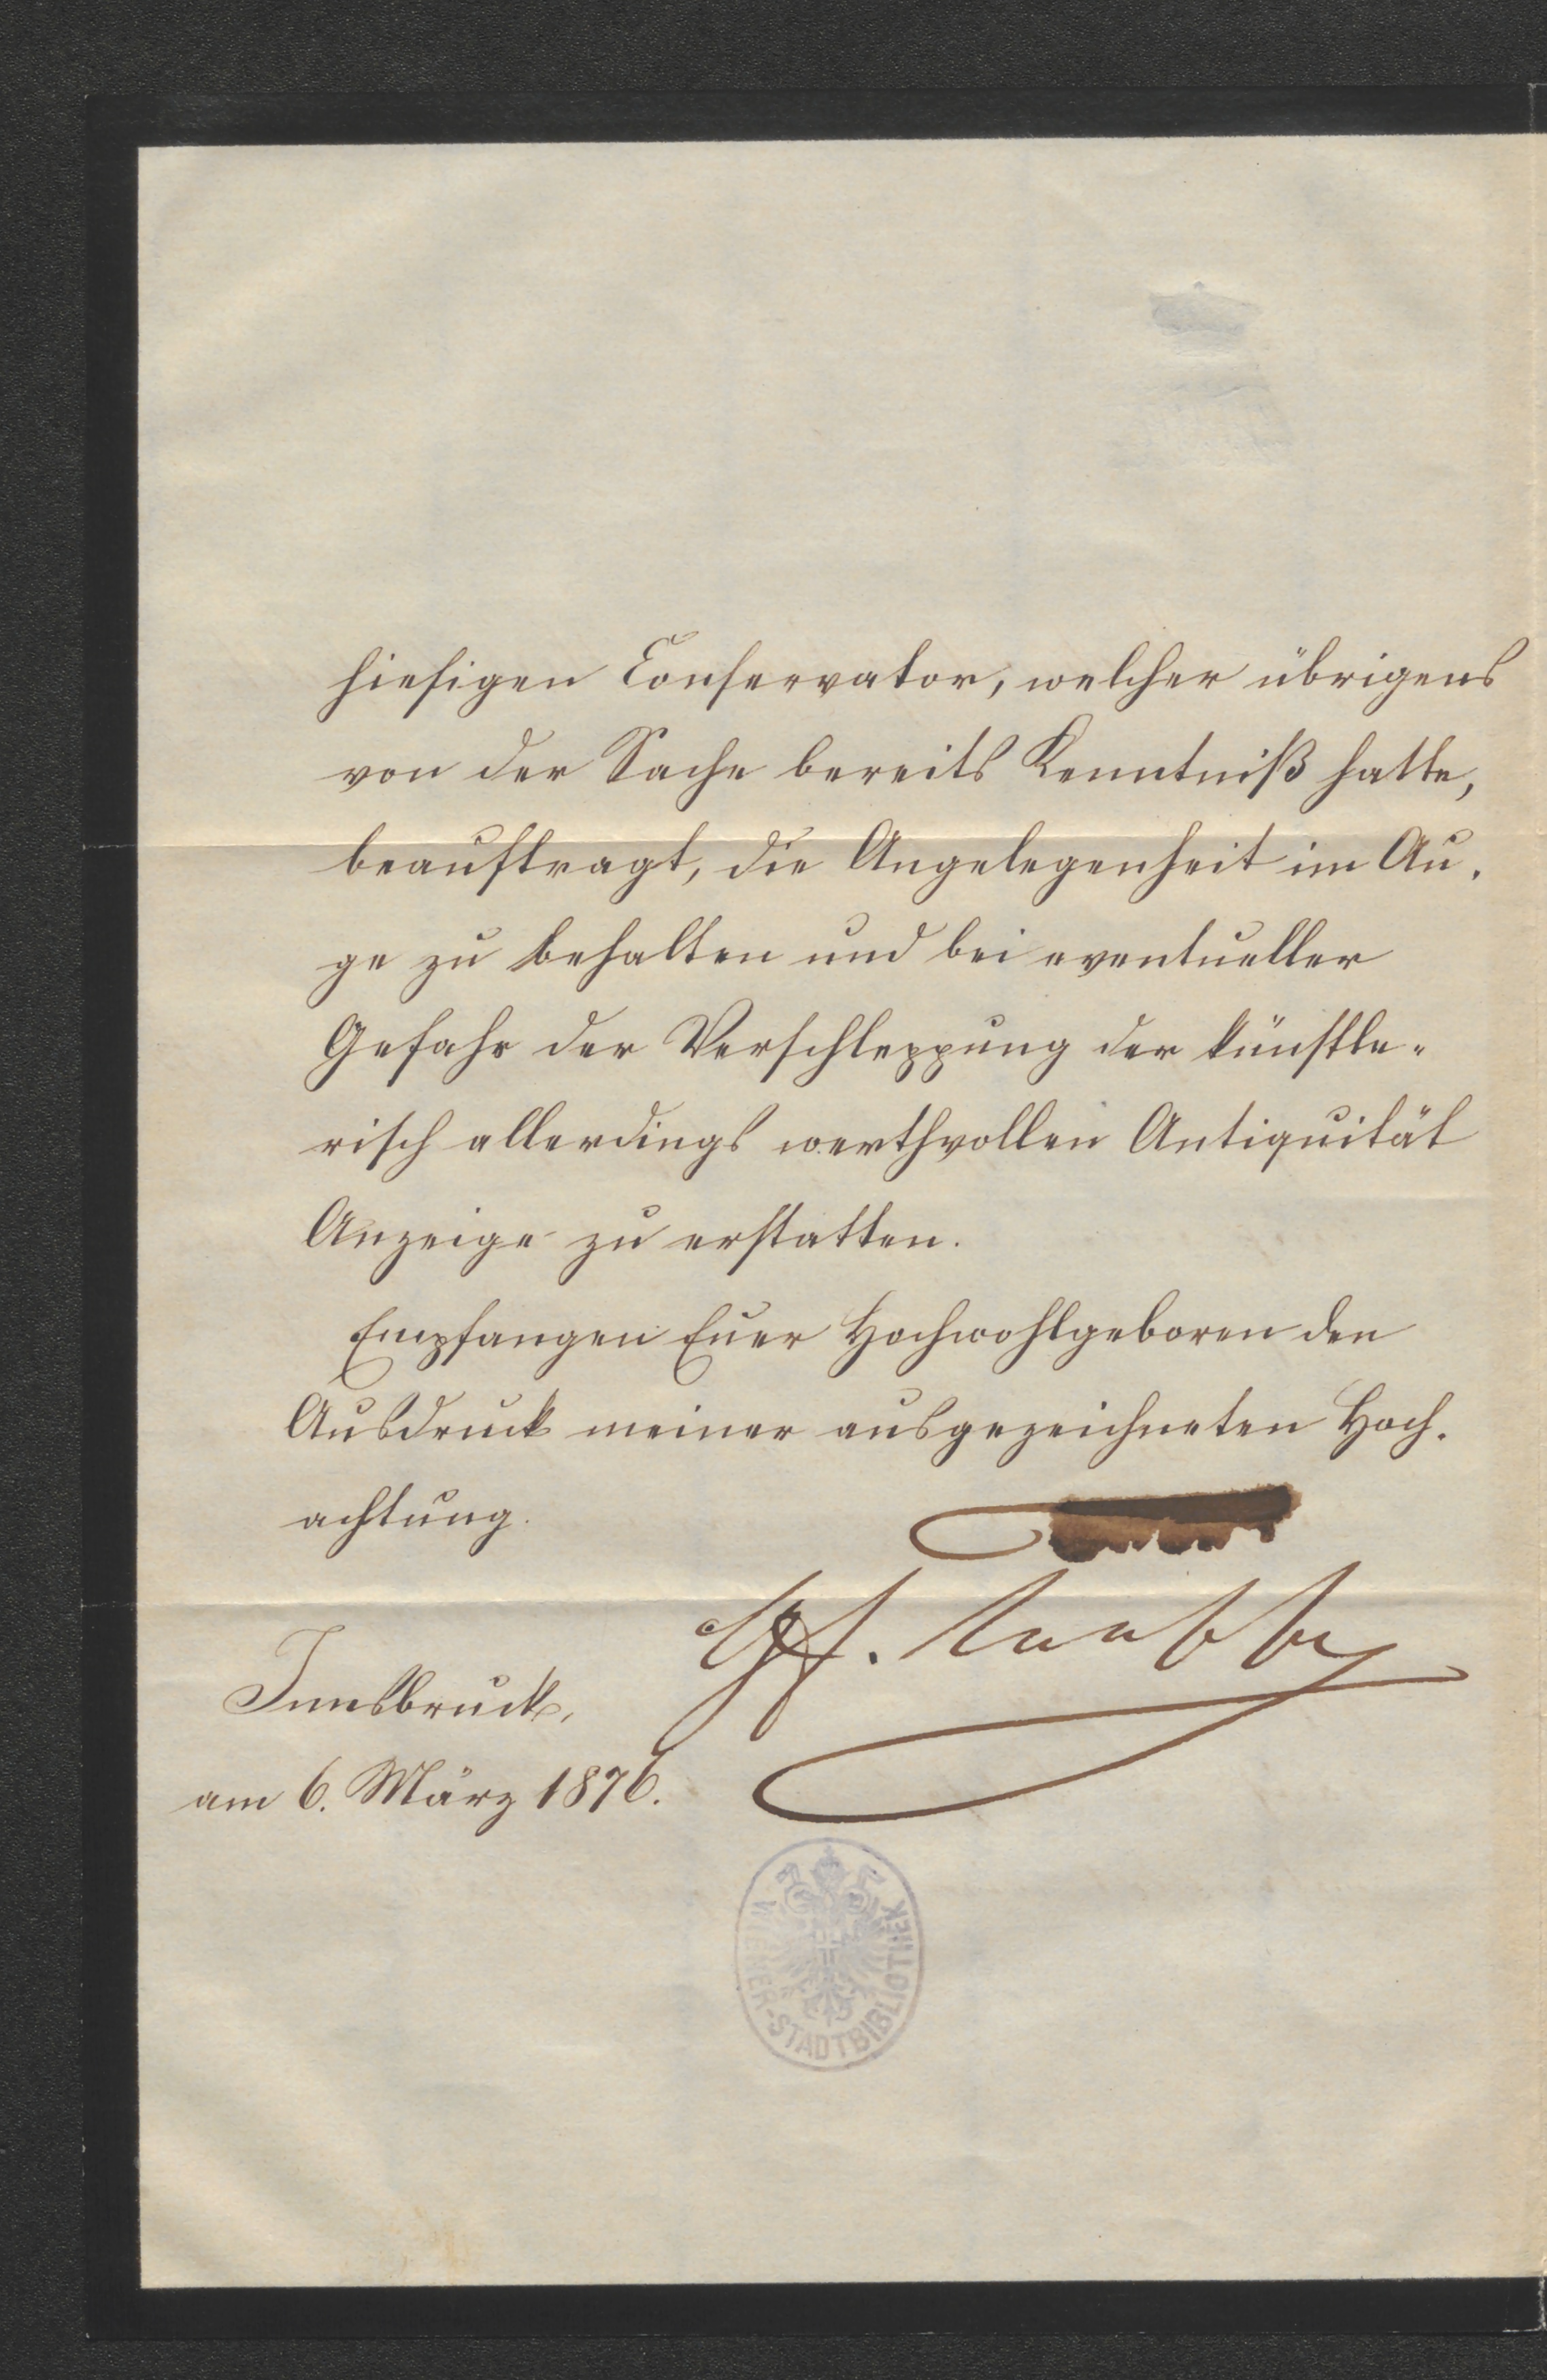 hiesigen Conservator, welcher übrigens
von der Sache bereits Kenntniß hatte,
beauftragt, die Angelegenheit im Au-
ge zu behalten und bei eventueller
Gefahr der Verschleppung der künstle-
risch allerdings werthvollen Antiquität
Anzeige zu erstatten.
Empfangen Euer Hochwohlgeboren den
Ausdruck meiner ausgezeichneten Hoch-
achtung.
Innsbruck,
am 6. März 1876.
WIENER-STADTBIBLIOTHEK